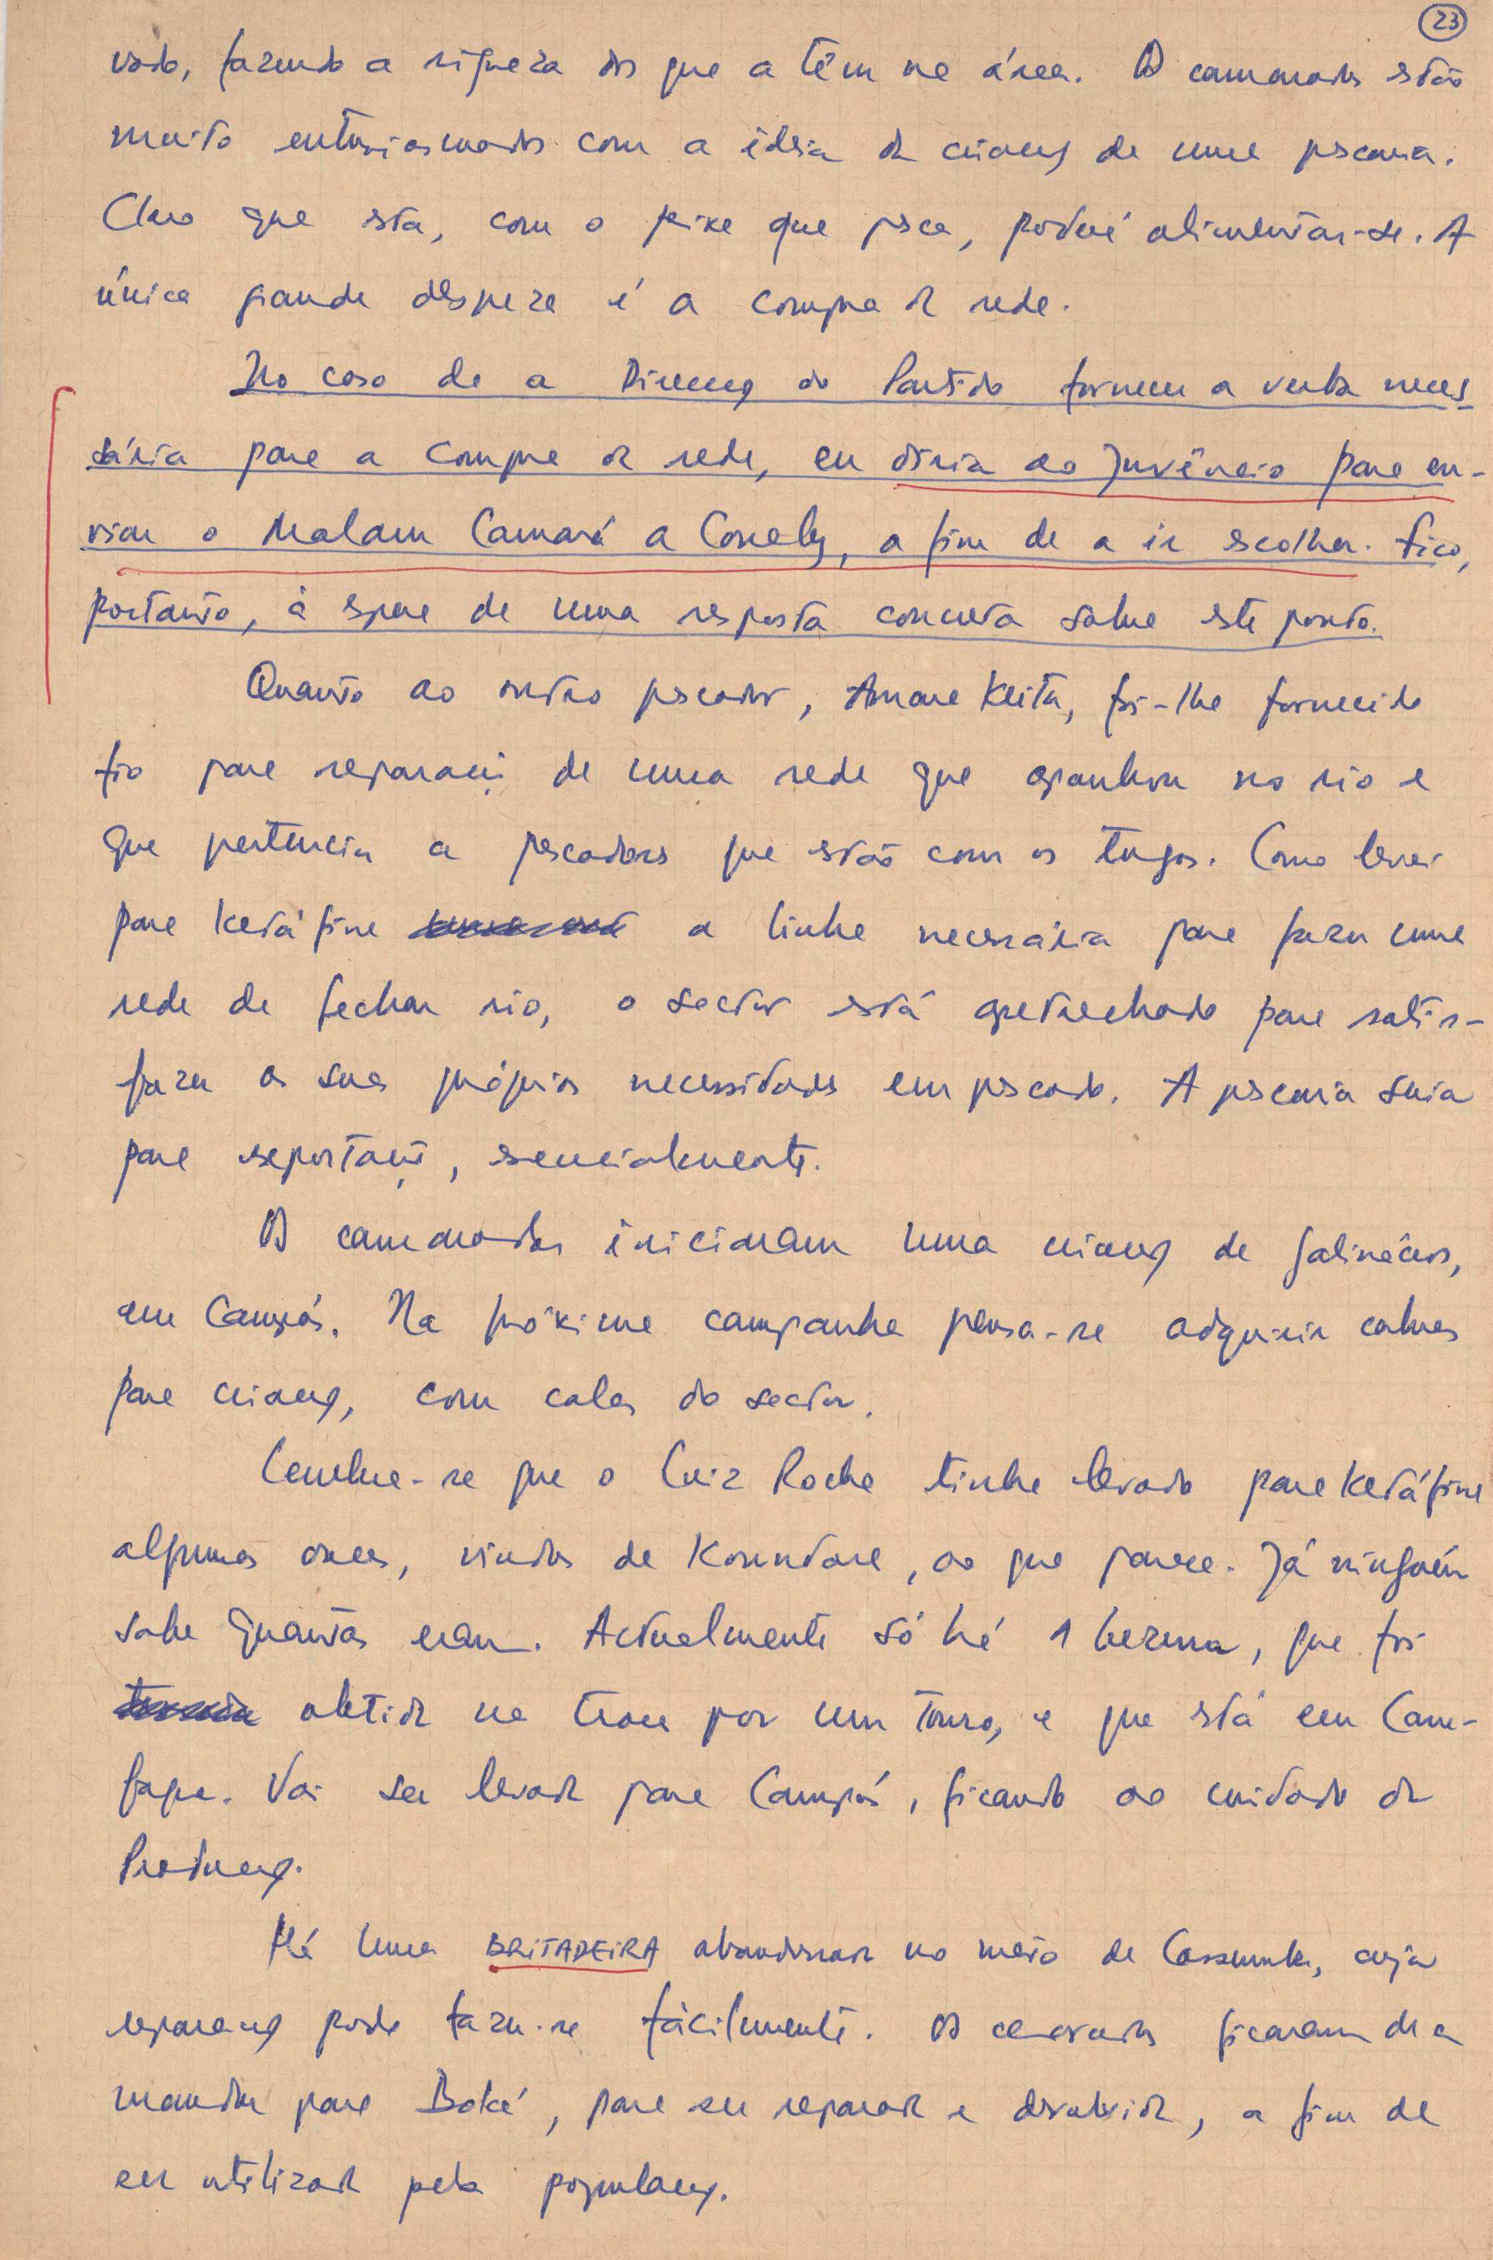 23
vado, fazendo a riqueza dos que a têm na área. Os camaradas estão
muito entusiasmados com a ideia da criação de uma pescaria.
Claro que esta, com o peixe que pesca, poderá alimentar-se. A
única grande despeza é a compra da rede.
No caso de a Direcção do Partido fornecer a verba neces-
sária para a compra da rede, eu diria ao Juvêncio para en-
viar o Malam Camará a Conakry, a fim de a ir escolher. Fico,
portanto, à espera de uma resposta concreta sobre este ponto.
Quanto ao outro pescador, Amara Keita, foi-lhe fornecido
fio para reparação de uma rede que apanhou no rio e
que pertencia a pescadores que estão com os tugas. Como levei
para Ketáfine a linha necessária para fazer uma
rede de fechar rio, o sector está apetrechado para satis-
fazer as suas próprias necessidades em pescado. A pescaria seria
para exportação, essencialmente.
Os camaradas iniciaram uma criação de galináceos,
em Campós. Na próxima campanha pensa-se adquirir cabras
para criação, com colas do sector.
Lembra-se que o Luiz Rocha tinha levado para Ketáfine
algumas vacas, vindas de Koundara, ao que parece. Já ninguém
sabe quantas eram. Actualmente só há 1 bezerra, que foi
obtida na troca por um touro, e que está em Cam-
faga. Vai ser levada para Campós, ficando ao cuidado da
Produção.
Há uma BRITADEIRA abandonada no meio de Cassumba, cuja
reparação pode fazer-se fàcilmente. Os camaradas ficaram de a
mandar para Boké, para ser reparada e devolvida, a fim de
ser utilizada pela população.